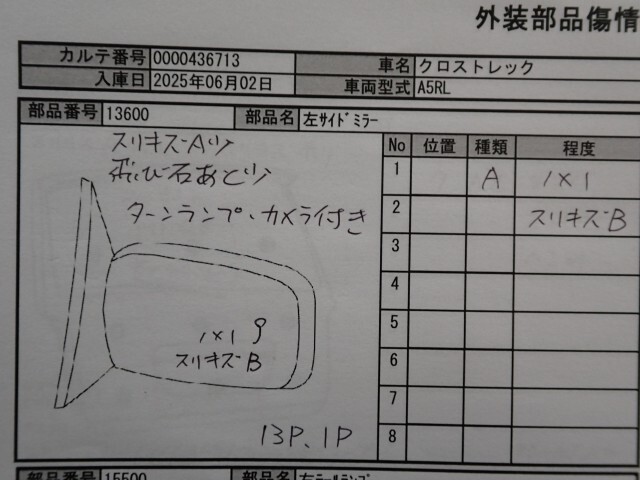 外装部品傷情
カルテ番号 0000436713 車名 クロストレック
入庫日 2025年06月02日 車両型式 A5RL
部品番号 13600 部品名 左サイドミラー
スリキズA少
飛び石あと少
ターンランプ・カメラ付き
No 位置 種類 程度
1 A 1×1
2 スリキズB
3
4
5
6
7
8
1×1
スリキズB
13P、1P
部品番号 15500 部品名 左テールランプ